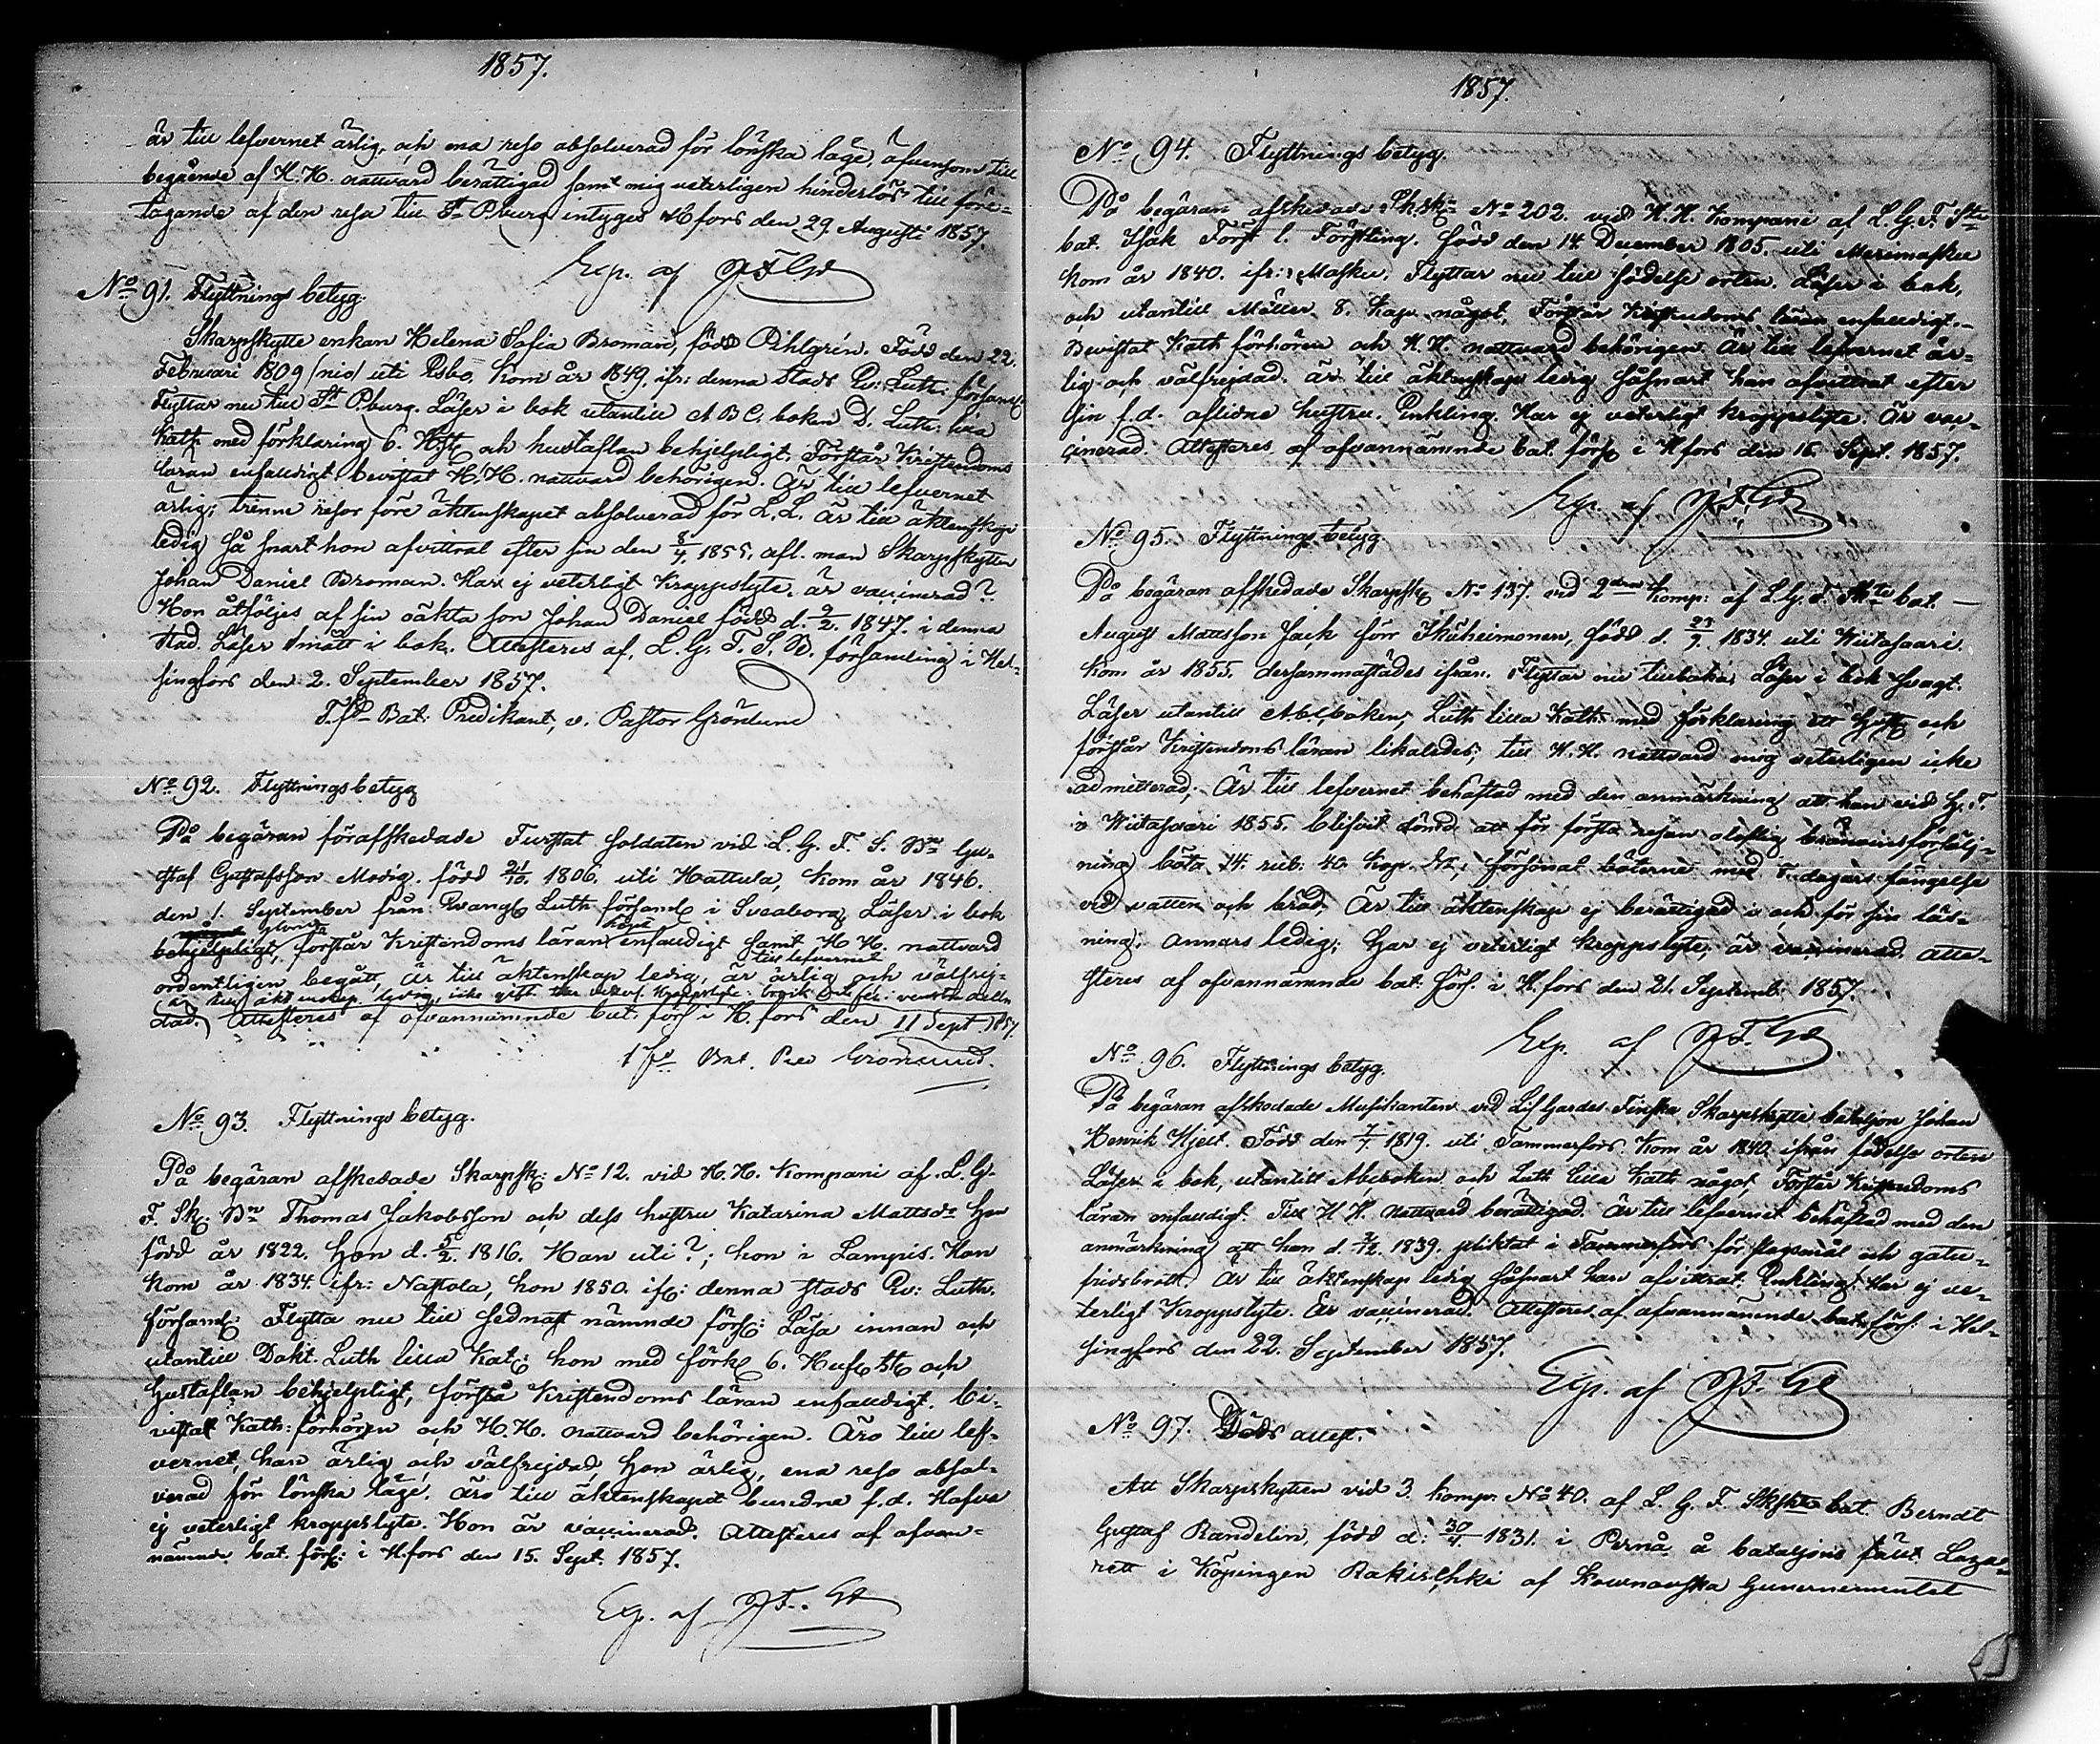 1857.
är till lefvernet ärlig, och ena reso absolverad för lönska läge, äfvensom till
begående af H. H. nattvard berättigad samt mig veterligen hinderlös till före-
tagande af den resa till St P.burg intygas Hfors den 29 Augusti 1857.
Exp. af
No 91. Flyttnings betyg.
Skarpskytte enkan Helena Sofia Broman, född Pihlgrén. Född den 22.
Februari 1809 (nio) uti Esbo, kom år 1849, ifr: denna stads Ev: Luth: församl
Flyttar nu till St P.burg. Läser i bok utantill A B C. boken D. Luth: lilla
Kath med förklaring 6. Hft och hustaflan behjelpligt. Förstår Kristendoms
läran enfaldigt bevistat H. H. nattvard behörigen. Är till lefvernet
ärlig; trenne resor före äktenskapet absolverad för L. L. Är till äktenskap
ledig så snart hon afvittrat efter sin den 8/4 1855. afl. man Skarpskytten
Johan Daniel Broman. Har ej veterligt kroppslyte. är vaccinerad?
Hon åtföljes af sin oäkta son Johan Daniel född d. 9/2 1847. i denna
stad. Läser smått i bok. Attesteras af, L. G. F. S. B. församling i Hel-
singfors den 2. September 1857.
Bat: Predikant, v. Pastor Grönlund
No 92. Flyttningsbetyg
På begäran för afskedade Furstat soldaten vid L. G. F. S. Bn Gu-
staf Gustafsson Modig. född 21/10 1806. uti Hattula, kom år 1846.
den 1. September från Evangl Luth församl i Sveaborg Läser i bok
behjelpligt, förstår Kristendoms läran enfaldigt samt H H. nattvard
till lefvernet
ordentligen begått, är till äktenskap ledig, är ärlig och välfrej-
dad. Attesteras af ofvannämnde bat: förs i H.fors den 11 Sept. 1857.
Bat. Pred Grönlund.
No 93. Flyttnings betyg.
På begäran afskedade Skarpsk: No 12. vid H. H. Kompani af L. G.
F. Sk: Bn Thomas Jakobsson och dess hustru Katarina Mattsdr Han
född år 1822. Hon d. 5/2. 1816. Han uti ?; hon i Lampis. Han
kom år 1834 ifr: Nastola, hon 1850. ifr: denna stads Ev: Luth.
församl: Flytta nu till sednast nämnde förs: Läsa innan och
utantill Dokt. Luth lilla Kat: hon med förkl 6. Hufvst och
hustaflan behjelpligt, förstå Kristendoms läran enfaldigt. bi-
vistat Kath: förhören och H. H. nattvard behörigen. Äro till lef-
vernet, han ärlig och välfrejdad, hon ärlig, ena reso absol-
verad för lönska läge. äro till äktenskapet bundna f. d. Hafva
ej veterligt kroppslyte. Hon är vaccinerad. Attesteras af ofvan-
nämnde bat. förs: i H.fors den 15. Sept. 1857.
Exp. af
1857.
No 94. Flyttnings betyg.
På begäran afskedade Sk.sk: No 202. vid H. H. Kompani af L. G. F.
bat. Isak Först l. Förstling. Född den 14. December 1805. uti Merimasku
kom år 1840. ifr: Masku. Flyttar nu till födelse orten. Läser i bok,
och utantill Möller 8. Kap något. Förstår Kristendoms läran enfaldigt.
Bevistat Kath förhören och H. H. nattvard behörigen. Är till lefvernet är-
lig och välfrejdad. är till äktenskap ledig såsnart han afvittrat efter
sin f. d. aflidna hustru. Enkling. Har ej veterligt kroppslyte. Är vac-
cinerad. Attesteras af ofvannämnde bat. förs i Hfors den 16. Sept. 1857.
Exp. af
No 95. Flyttnings betyg.
På begäran afskedade Skarpsk No 137. vid 2dra komp: af L. G. F. bat.
August Mattsson Jack förr Ikäheimonen, född d. 23/7 1834. uti Wiitasaari.
kom år 1855. dersammastädes ifrån. Flyttar nu tillbaka. Läser i bok svagt.
Läser utantill Abcboken, Luth lilla Kath med förklaring och
förstår Kristendoms läran likaledes; till H. H. nattvard mig veterligen icke
admitterad, Är till lefvernet behäftad med den anmärkning att han vid H. T.
i Wiitasaari 1855. blifvit dömd att för första resan olaflig bränvins försälj-
ning böta 14. rub: 40. kop. Sr; försonat böterne med dagars fängelse
vid vatten och bröd, Är till äktenskap ej berättigad och för sin läs-
ning; annars ledig; har ej veterligt kroppslyte; är vaccinerad. atte-
steras af ofvannämnde bat. förs: i H.fors den 21. Septemb. 1857.
Exp. af
No 96. Flyttnings betyg.
På begäran afskedade Musikanten vid Lif Gardes Finska Skarpskytte bataljon Johan
Henrik Hjelt. Född den 7/1 1819. uti Tammerfors. Kom år 1840 ifrån födelse orten
Läser i bok, utantill Abcboken och Luth lilla Kath något. Förstår Kristendoms
läran enfaldigt. Till H H. Nattvard berättigad. Är till lefvernet behäftad med den
anmärkning att han d. 2/12. 1839. pliktat i Tammerfors för slagsmål och gatu-
fridsbrott. Är till äktenskap ledig såsnart han afvittrat. Enkling. Har ej ve-
terligt kroppslyte. Är vaccinerad. Attesteras af ofvannämnde bat. förs: i Hel-
singfors den 22. September 1857.
Exp. af
No 97. Döds attest.
Att Skarpskytten vid 3. komp. No 40. af L. G. F. bat. Berndt
Gustaf Randelin, född d: 30/4 1831. i Pernå å bataljons fält Laza-
rett i Köpingen Rakischki af Kownovska Guvernementet